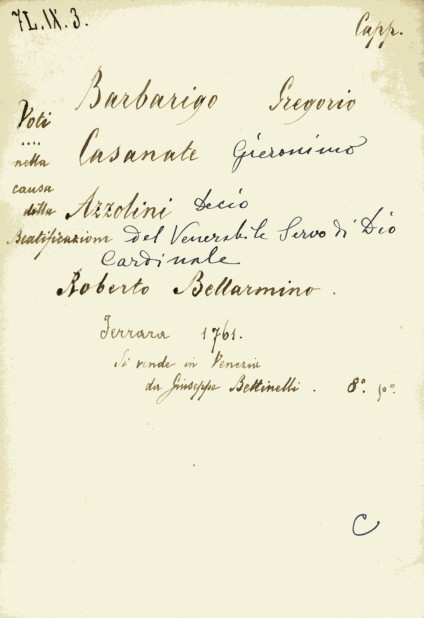 7L.IX.3.
Capp.
Barbarigo Gregorio
Voti
....
nella
Casanate Gieronimo
causa
della
Azzolini Decio
Beatificazione del Venerabile Servo di Dio
Cardinale
Roberto Bellarmino.
Ferrara 1761.
Si vende in Venezia
da Giuseppe Bettinelli. 8°.
C